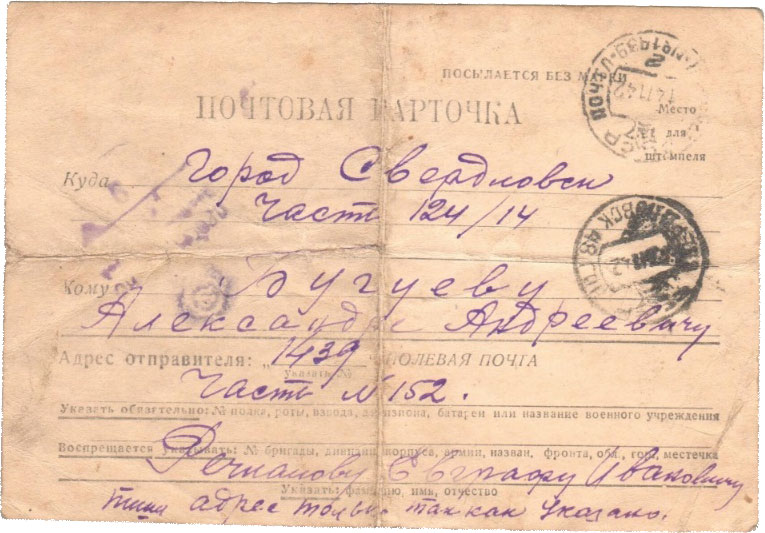 ПОСЫЛАЕТСЯ БЕЗ МАРКИ
ПОЧТОВАЯ КАРТОЧКА
Место
для
штемпеля
Куда Город Свердловск
Часть 124/14
Кому
Александру Андреевичу
Адрес отправителя: „1439 ПОЛЕВАЯ ПОЧТА
указать №
Часть N 152.
Указать обязательно: № полка, роты, взвода, дивизиона, батареи или название военного учреждения
Воспрещается указывать: № бригады, дивизии, корпуса, армии, назван. фронта, обл., гор., местечка
Ивановичу
Указать: фамилию, имя, отчество
пиши адрес только так как указано.